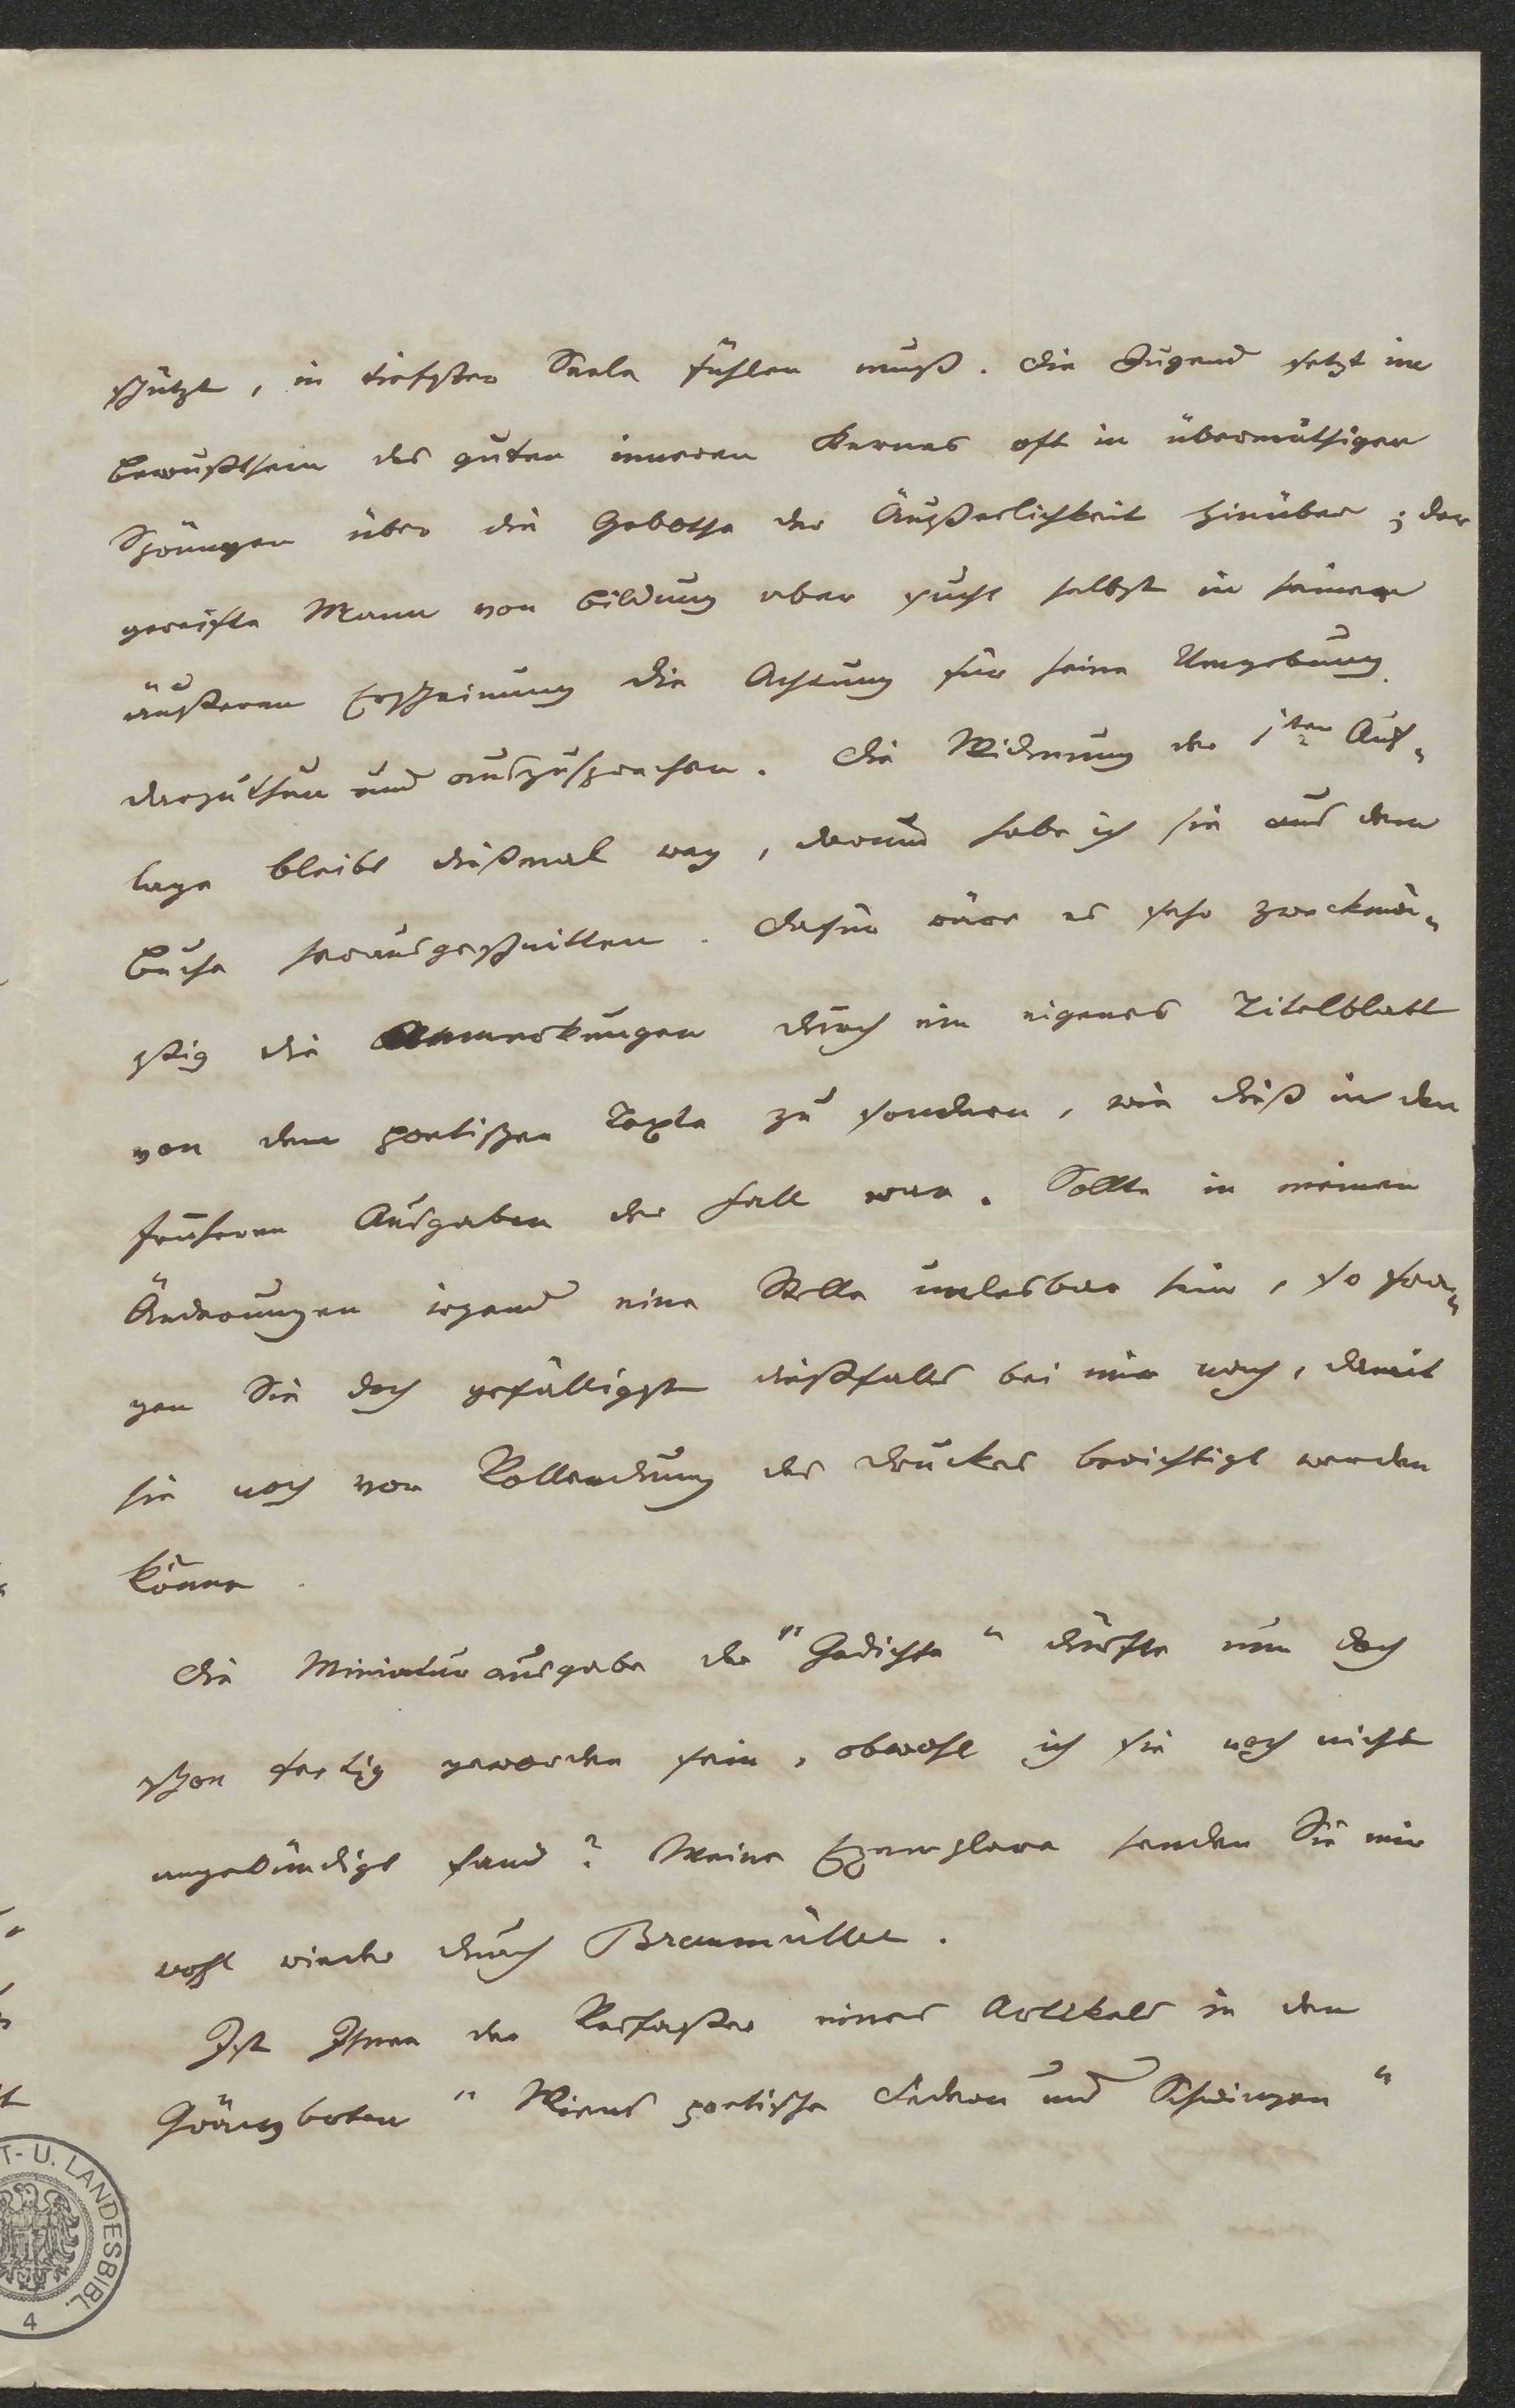 schützt, in tiefster Seele fühlen muß. Die Jugend setzt im
Bewußtsein des guten inneren Kernes oft in übermüthigen
Sprüngen über die Gebothe der Äußerlichkeit hinüber; der
gereifte Mann von Bildung aber sucht selbst in seiner
äußeren Erscheinung die Achtung für seine Umgebung
darzuthun und auszusprechen. Die Widmung der 1ten Auf-
lage bleibt dießmal weg, darum habe ich sie aus dem
Buche herausgeschnitten. Dafür wäre es sehr zweckmä-
ßig die Anmerkungen durch ein eigenes Titelblatt
von dem poetischen Texte zu sondern, wie dieß in den
früheren Ausgaben der Fall war. Sollte in meinen
Änderungen irgend eine Stelle unlesbar sein, so fra-
gen Sie doch gefälligst dießfalls bei mir nach, damit
sie noch vor Vollendung des Druckes berichtigt werden
könne.
Die Miniaturausgabe der "Gedichte" dürfte nun doch
schon fertig geworden sein, obwohl ich sie noch nicht
angekündigt fand? Meine Exemplare senden Sie mir
wohl wieder durch Braumüller.
Ist Ihnen der Verfasser eines Artikels in den
Gränzboten "Wiens poetische Federn und Schwingen"
T- U. LANDESBIBL.
4